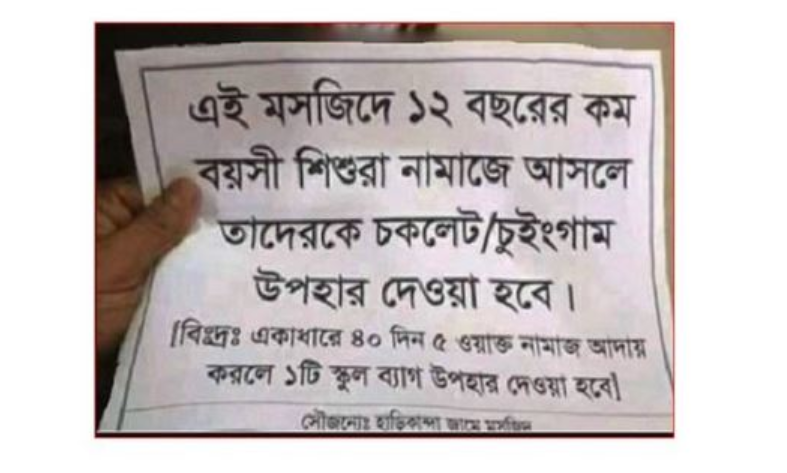 এই মসজিদে ১২ বছরের কম
বয়সী শিশুরা নামাজে আসলে
তাদেরকে চকলেট/চুইংগাম
উপহার দেওয়া হবে।
[বিঃদ্রঃ একাধারে ৪০ দিন ৫ ওয়াক্ত নামাজ আদায়
করলে ১টি স্কুল ব্যাগ উপহার দেওয়া হবে]
সৌজন্যেঃ হাড়িকান্দা জামে মসজিদ